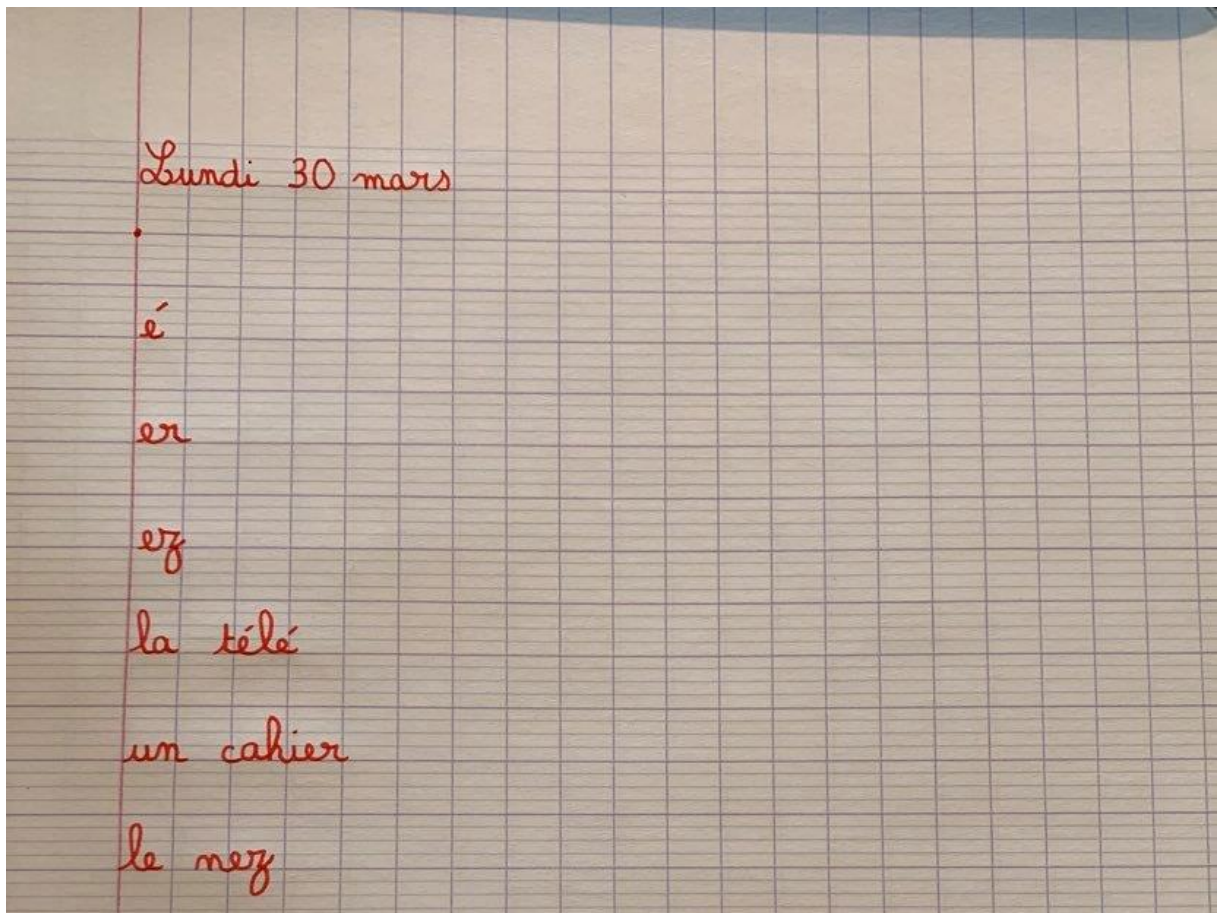 Lundi 30 mars
.
é
er
ez
la télé
un cahier
le nez